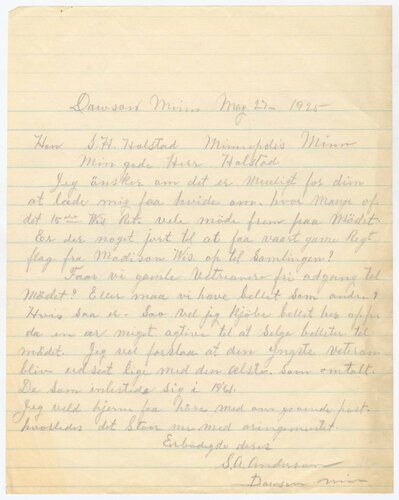 Dawson Minn. May 27 - 1925
Hon S.H. Holstad Minneapolis Minn
Min gode Herr Holstad.
Jeg önsker om det er muligt for dem
at lade mig faa hvide om, hvor Mange af
det 15de Wis Rets vele möde frem paa Mödet.
Er der noget jort til at faa vaart gamle Regt
flag fra Madison Wis. op til Samlingen?
Faar vi gamle Vetrianere fri adgang til
Mödet? Eller maa vi have bellet som andre?
Hvis saa er. Saa vil jeg kjöbe bellet her oppe
da en ar meget active til at Selge belleter til
mödet. Jeg vil forslaa at den Yngste Veteran
bliv udset lige med den Ælste. Som omtalt.
De Som inlestide sig i 1861.
Jeg vild hjerne faa höre med om gaaende post
hvorledes det Staar nu med aringmentet.
Erbödigste deres
S.A. Anderson
Dawson Minn